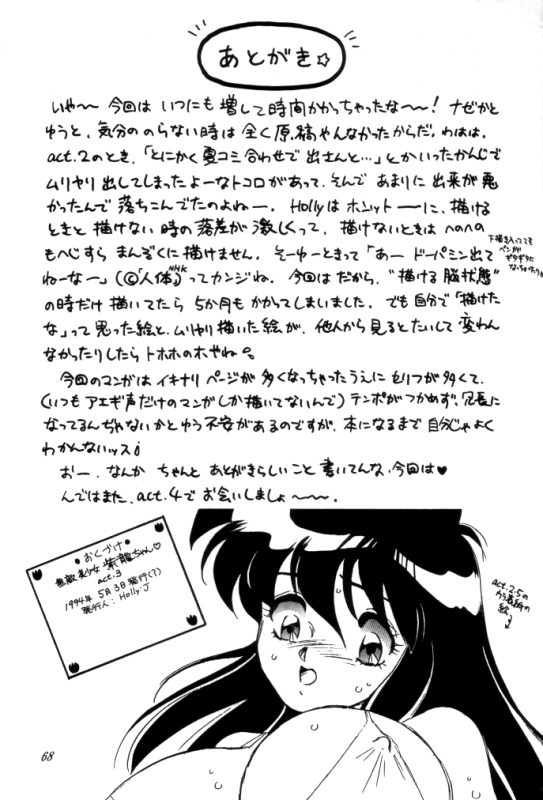 あとがき☆
いや〜〜 今回は いつにも 増して 時間 かかっちゃったな〜〜！ ナゼかと
ゆうと、気分の のらない時は 全く 原稿やんなかったからだ。わはは。
act.2のとき、「とにかく夏コミ合わせで 出さんと…」とかいったかんじで
ムリヤリ 出してしまったよーなトコロがあって、そんで あまりに 出来が 悪
かったんで 落ちこんでたのよねー. Hollyは ホンットーーに、描ける
ときと 描けない 時の 落差が 激しくって、描けないときは へのへの
もへじすら まんぞくに 描けません。そーゆーときって「あー ドーパミン出て
ねーなー」(©「人体」NHK)ってカンジね. 今回はだから、“描ける 脳状態”
の時だけ 描いてたら 5か月も かかってしまいました. でも自分で「描けた
な」って 思った絵と、ムリヤリ描いた絵が、他人から 見ると たいして 変わん
なかったりしたら トホホのホやね。
下描き入ってても
ペンが
ギタギタに
なっちゃったり
今回のマンガは イキナリ ページが 多くなっちゃったうえに せりフが 多くて、
(いつも アエギ声だけのマンガしか 描いてないんで) テンポがつかめず、冗長に
なってるんぢゃないかとゆう 不安があるのですが、本になるまで 自分じゃよく
わかんないッス。
おー、なんか ちゃんと あとがきらしいこと 書いてんな、今回は♥
んではまた、act.4で お会いしましょ〜〜〜.
•おくづけ•
無敵美少女 紫龍ちゃん♡
act.3
1994年 5月 3日発行(?)
発行人：Holly・J
act.2.5の
絵
68